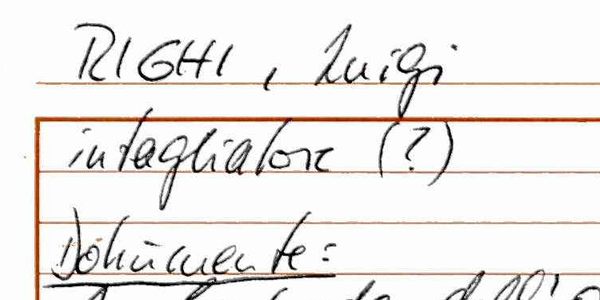 RIGHI, Luigi
intagliatore (?)
Dokumente: